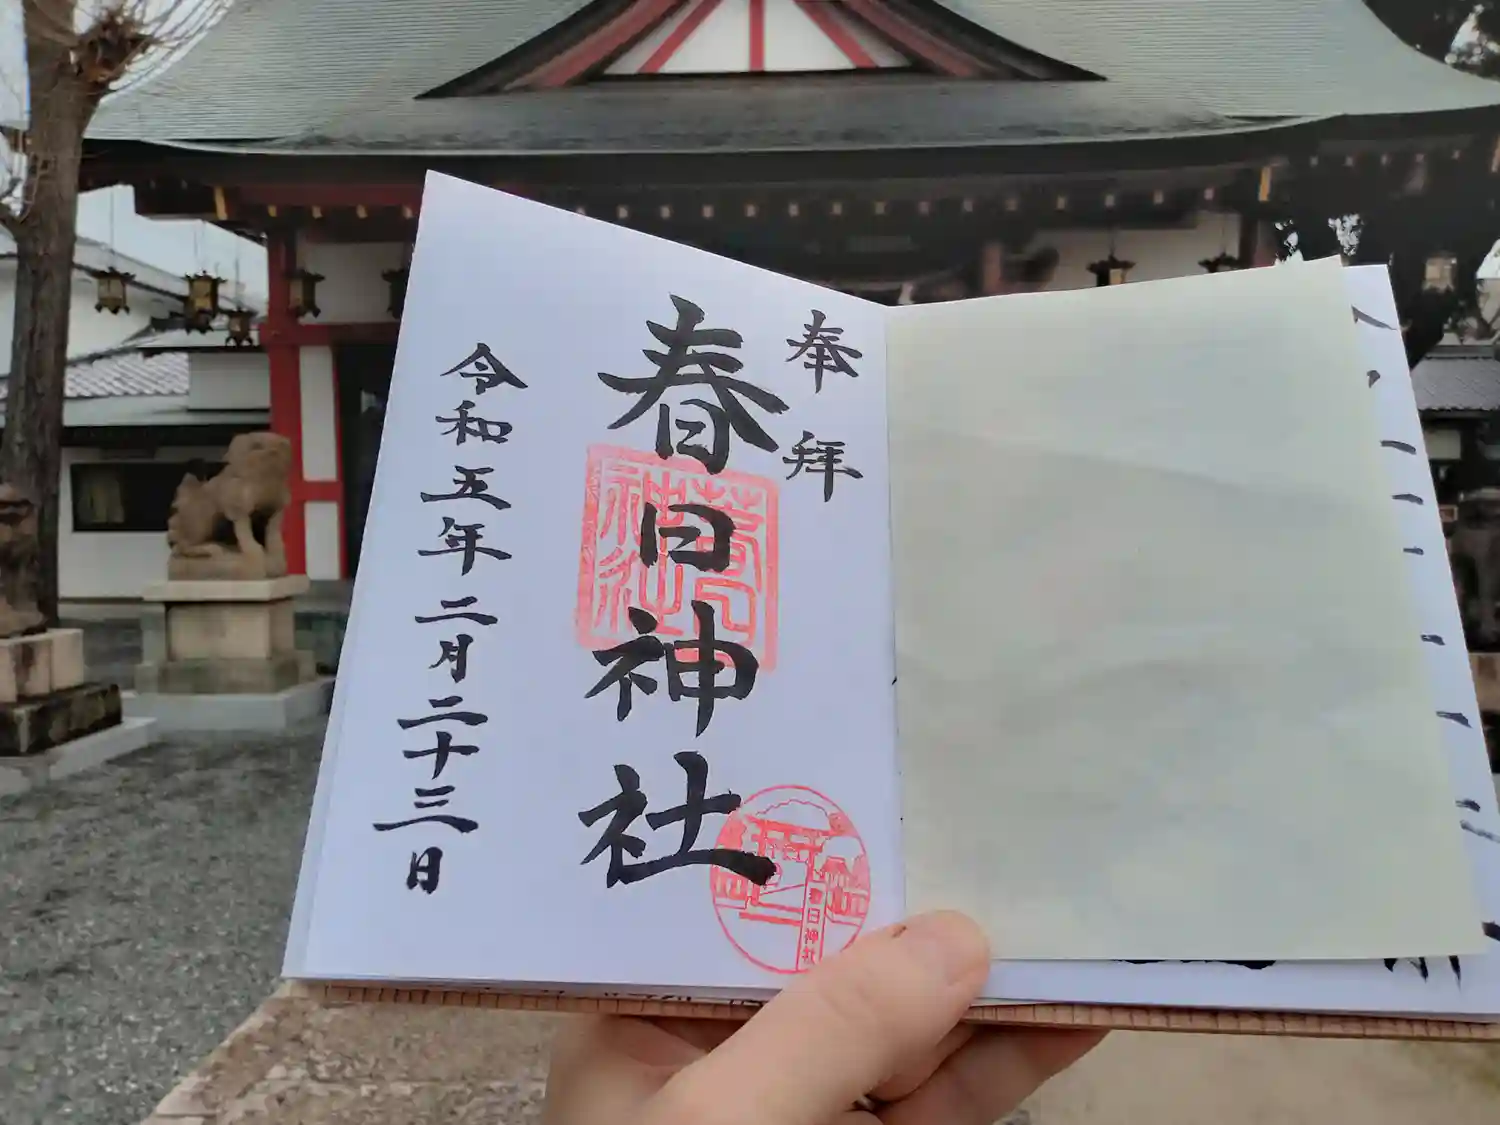 奉拝
春日神社
令和五年二月二十三日
春日神社